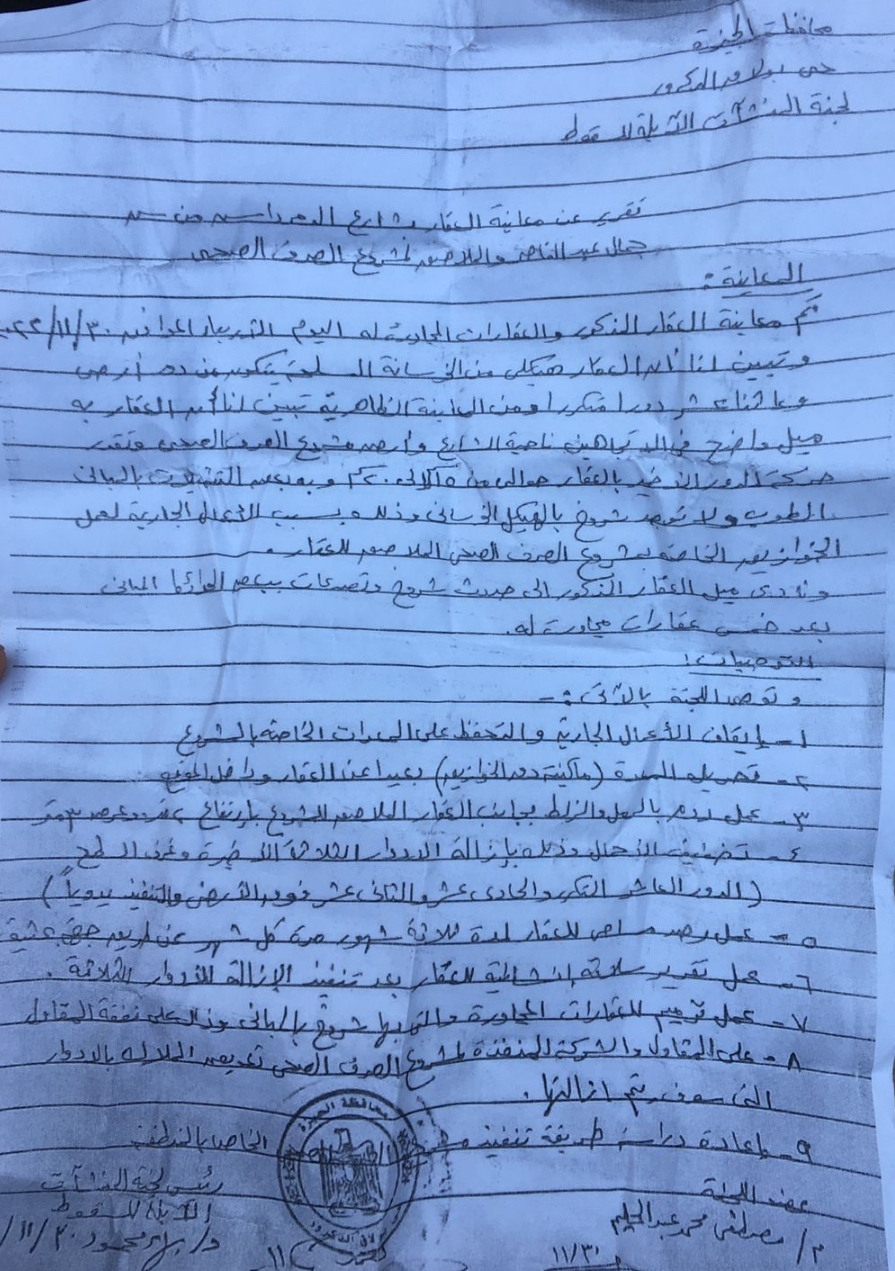 محافظة الجيزة
حى بولاق الدكرور
لجنة المنشآت الآيلة للسقوط
تقرير عن معاينة العقار بشارع من ش
جمال عبد الناصر والملاصق لمشروع الصرف الصحى
المعاينة :
تم معاينة العقار المذكور والعقارات المجاورة له اليوم الأربعاء الموافق ٣٠/١١/٢٠٢٢
وتبين لنا أن العقار هيكلى من الخرسانة المسلحة يتكون من دور أرضى
وعدد اثنا عشر دورا متكررا ومن المعاينة الظاهرية تبين لنا أن العقار به
ميل واضح فى الاتجاهين ناحية الشارع وأرض مشروع الصرف الصحى وتقدر
حركة الدور الأخير بالعقار حوالى من ١٥ الى ٢٠ سم وبه بعض التنميلات بالمبانى
الطوب ولا توجد شروخ بالهيكل الخرسانى وذلك بسبب الأعمال الجارية لعمل
الخوازيق الخاصة بمشروع الصرف الصحى الملاصق للعقار .
وأدى ميل العقار المذكور الى حدوث شروخ وتصدعات ببعض الحوائط المبانى
بعدد خمس عقارات مجاورة له .
التوصيات :
وتوصى اللجنة بالآتى :-
١- إيقاف الأعمال الجارية والتحفظ على المعدات الخاصة بالمشروع
٢- تحريك المعدة (ماكينة دق الخوازيق) بعيدا عن العقار وداخل الموقع
٣- عمل ردم بالرمل والزلط بجانب العقار الملاصق للمشروع بارتفاع ٢ متر وعرض ٣ متر
٤- تخفيف الأحمال وذلك بإزالة الادوار الثلاثة الأخيرة وغرف السطح
(الدور العاشر المتكرر والحادى عشر والثانى عشر فوق الأرضى والتنفيذ يدوياً)
٥- عمل رصد مساحى للعقار لمدة ثلاثة شهور مرة كل شهر عن طريق جهة
٦- عمل تقرير سلامة إنشائية للعقار بعد تنفيذ الإزالة للأدوار الثلاثة .
٧- عمل ترميم للعقارات المجاورة والتى بها شروخ بالمبانى وذلك على نفقة المقاول
٨- على المقاول والشركة المنفذة لمشروع الصرف الصحى تعويض الملاك بالادوار
التى سوف يتم ازالتها .
٩- إعادة دراسة طريقة تنفيذ مشروع الصرف الخاص بالمنطقة
عضو اللجنة
م/ مصطفى محمد عبد الحليم
٣٠/١١
رئيس لجنة المنشآت
الآيلة للسقوط
د/ محمود ٣٠/١١/
محافظة الجيزة